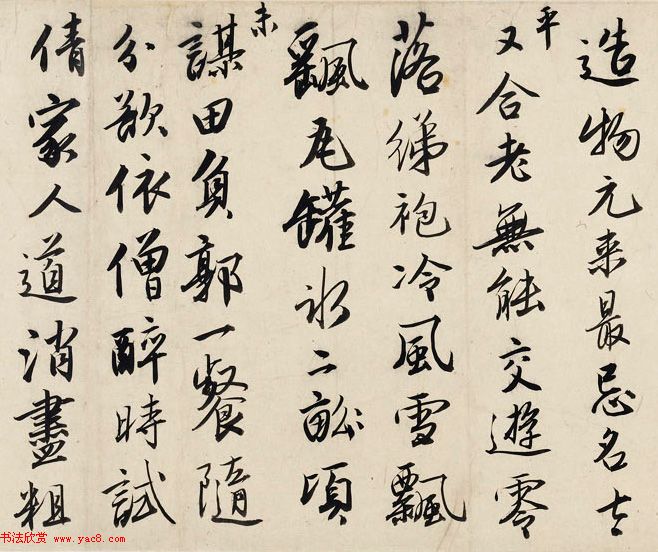 造物元来最忌名生
平又合老無能交遊零
落綈袍冷風雪飄
飄瓦罐冰二畝頃
未謀田負郭一餐隨
分欲依僧醉時試
倩家人道消盡粗
书法欣赏
www.yac8.com